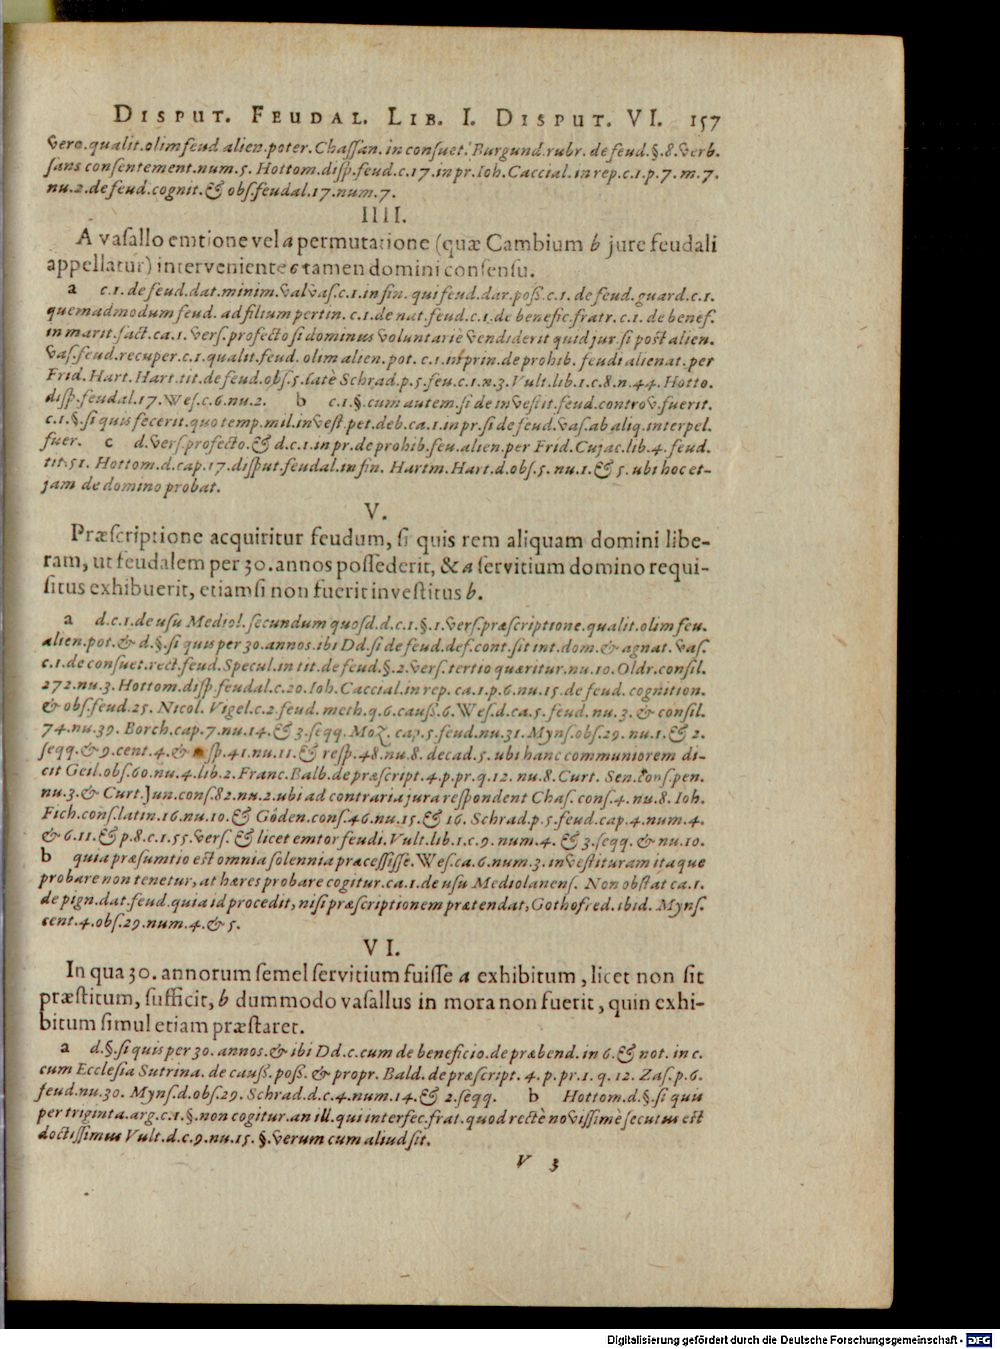 DISPUT. FEUDAL. LIB. I. DISPUT. VI. 157
vero. qualit. olim feud alien. poter. Chassan. in consuet. Burgund. rubr. de feud. §. 8. verb.
sans consentement. num. 5. Hottom. disp. feud. c. 17. in pr. Ioh. Caccial. in rep. c. 1. p. 7. m. 7.
nu. 2. de feud. cognit. & obs. feudal. 17. num. 7.
IIII.
A vasallo emtione vel a permutatione (quæ Cambium b jure feudali
appellatur) interveniente c tamen domini consensu.
a c. 1. de feud. dat. minim. valvas. c. 1. in fin. qui feud. dar. poss. c. 1. de feud. guard. c. 1.
quemadmodum feud. ad filium pertin. c. 1. de nat. feud. c. 1. de benefic. fratr. c. 1. de benef.
in marit. fact. ca. 1. vers. profecto si dominus voluntariè vendiderit quid jur. si post alien.
vas. feud. recuper. c. 1. qualit. feud. olim alien. pot. c. 1. in prin. de prohib. feudi alienat. per
Frid. Hart. Hart. tit. de feud. obs. 5. latè Schrad. p. 5. feu. c. 1. n. 3. Vult. lib. 1. c. 8. n. 44. Hotto.
disp. feudal. 17. Wes. c. 6. nu. 2. b c. 1. §. cum autem. si de investit. feud. controv. fuerit.
c. 1. §. si quis fecerit. quo temp. mil. invest. pet. deb. ca. 1. in pr. si de feud. vas. ab aliq. interpel.
fuer. c d. vers. profecto. & d. c. 1. in pr. de prohib. feu. alien. per Frid. Cujac. lib. 4. feud.
tit. 51. Hottom. d. cap. 17. disput. feudal. in fin. Hartm. Hart. d. obs. 5. nu. 1. & 5. ubi hoc et-
jam de domino probat.
V.
Præscriptione acquiritur feudum, si quis rem aliquam domini libe-
ram, ut feudalem per 30. annos possederit, & a servitium domino requi-
situs exhibuerit, etiamsi non fuerit investitus b.
a d. c. 1. de usu Mediol. secundum quosd. d. c. 1. §. 1. vers. præscriptione. qualit. olim feu.
alien. pot. & d. §. si quis per 30. annos. ibi Dd. si de feud. def. cont. sit int. dom. & agnat. vas.
c. 1. de consuet. rect. feud. Specul. in tit. de feud. §. 2. vers. tertio quæritur. nu. 10. Oldr. consil.
272. nu. 3. Hottom. disp. feudal. c. 20. Ioh. Caccial. in rep. ca. 1. p. 6. nu. 15. de feud. cognition.
& obs. feud. 25. Nicol. Vigel. c. 2. feud. meth. q. 6. causs. 6. Wes. d. ca. 5. feud. nu. 3. & consil.
74. nu. 39. Borch. cap. 7. nu. 14. & 3. seqq. Moz. cap. 5. feud. nu. 31. Myns. obs. 29. nu. 1. & 2.
seqq. & 9. cent. 4. & sp. 41. nu. 11. & resp. 48. nu. 8. decad. 5. ubi hanc communiorem di-
cit Geil. obs. 60. nu. 4. lib. 2. Franc. Balb. de præscript. 4. p. pr. q. 12. nu. 8. Curt. Sen. cons. pen.
nu. 3. & Curt. Jun. cons. 82. nu. 2. ubi ad contraria jura respondent Chas. cons. 4. nu. 8. Ioh.
Fich. cons. latin. 16. nu. 10. & Göden. cons. 46. nu. 15. & 16. Schrad. p. 5. feud. cap. 4. num. 4.
& 6. 11. & p. 8. c. 1. 55. vers. & licet emtor feudi. Vult. lib. 1. c. 9. num. 4. & 3. seqq. & nu. 10.
b quia præsumtio est omnia solennia præcessisse. Wes. ca. 6. num. 3. investituram itaque
probare non tenetur, at hæres probare cogitur. ca. 1. de usu Mediolanens. Non obstat ca. 1.
de pign. dat. feud. quia id procedit, nisi præscriptionem prætendat, Gothofred. ibid. Myns.
cent. 4. obs. 29. num. 4. & 5.
VI.
In qua 30. annorum semel servitium fuisse a exhibitum, licet non sit
præstitum, sufficit, b dummodo vasallus in mora non fuerit, quin exhi-
bitum simul etiam præstaret.
a d. §. si quis per 30. annos. & ibi Dd. c. cum de beneficio. de præbend. in 6. & not. in c.
cum Ecclesia Sutrina. de causs. poss. & propr. Bald. de præscript. 4. p. pr. 1. q. 12. Zas. p. 6.
feud. nu. 30. Myns. d. obs. 29. Schrad. d. c. 4. num. 14. & 2. seqq. b Hottom. d. §. si quis
per triginta. arg. c. 1. §. non cogitur. an ill. qui interfec. frat. quod rectè novissimè secutus est
doctissimus Vult. d. c. 9. nu. 15. §. verum cum aliud sit.
V 3
Digitalisierung gefördert durch die Deutsche Forschungsgemeinschaft - DFG